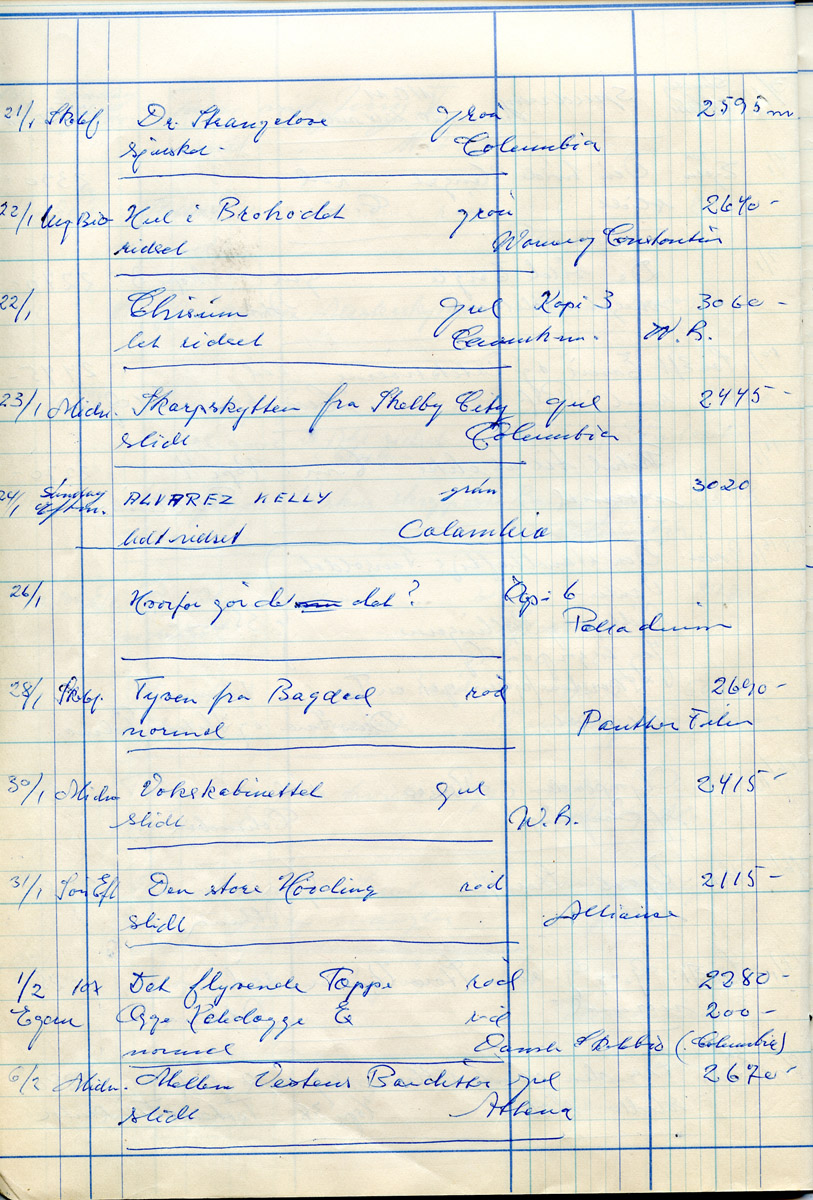 21/1 Skobf Dr. Strangelove grön 2595 m.
Columbia
22/1 Ung Bio Hul i Brohodet grön 2640 -
ridset Warner og Constantin
22/1 Chisum gul Kopi 3 3060 -
let ridset W. B.
23/1 Midn. Skarpskytten fra Shelby City gul 2445 -
slidt Columbia
24/1 Söndag Eftm. ALVAREZ KELLY grön 3020
lidt ridset Columbia
26/1 Hvorfor gör de det? Kopi 6
Palladium
28/1 Skobf. Tyven fra Bagdad röd 2690 -
normal Panther Film
30/1 Midn Vokskabinettet gul 2415 -
slidt W. B.
31/1 Sön Eft Den store Hövding röd 2115 -
slidt Alliance
1/2 10x Det flyvende Tæppe röd 2280 -
Egern röd 200 -
normal Dansk Skolebio (Columbia)
6/2 Midn. Mellem Vestens Banditter gul 2670 -
slidt Athena